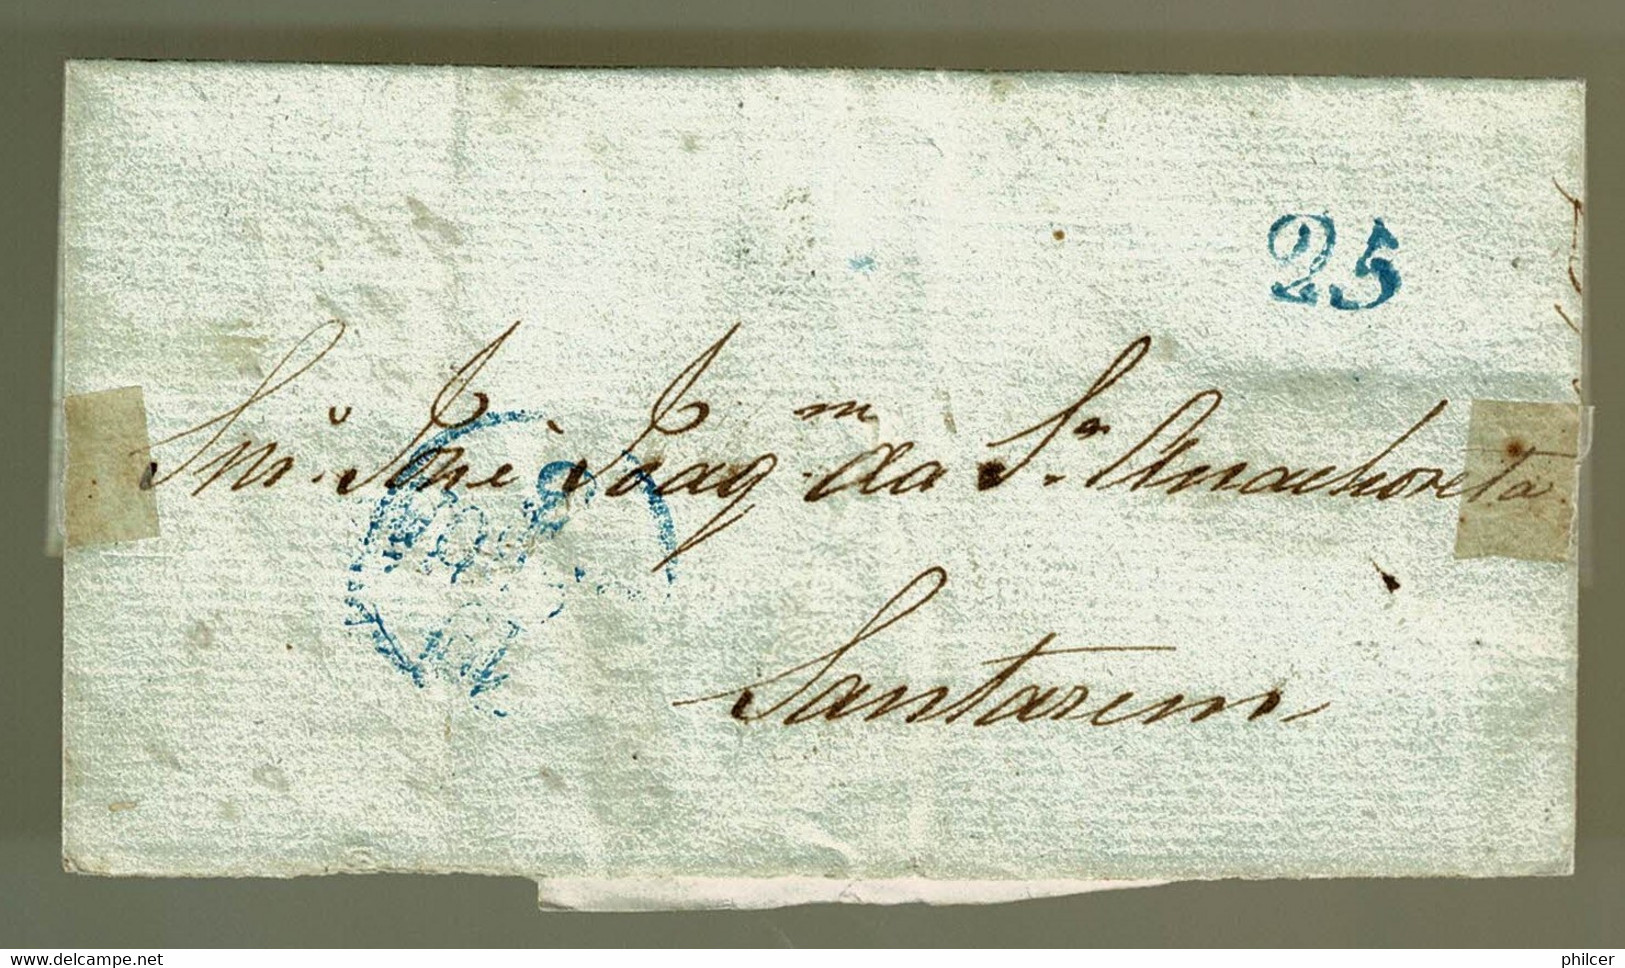 25
Snr. José Joaqm. da Sa. Anachoreta
Santarem
www.delcampe.net
philcer